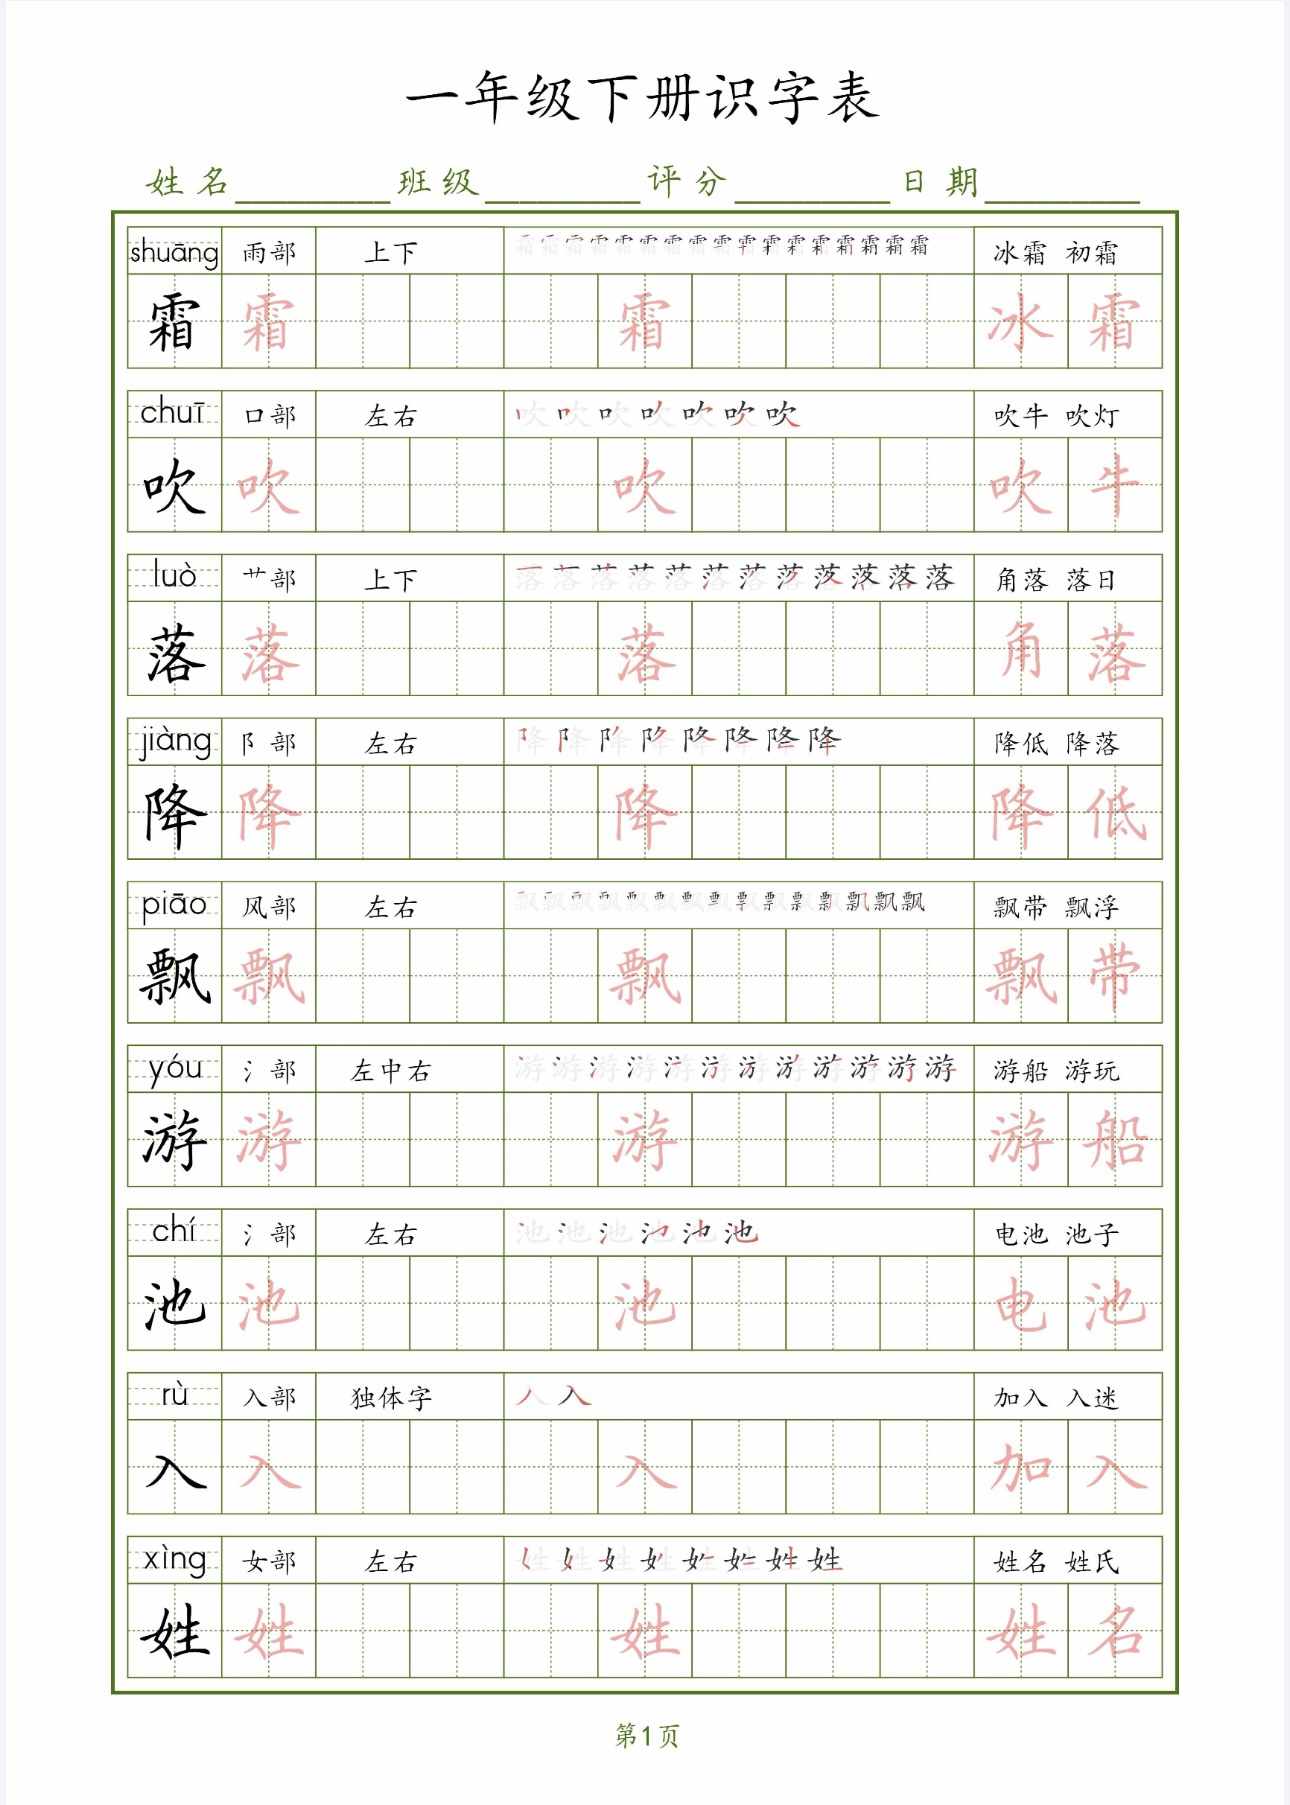 一年级下册识字表
姓名 班级 评分 日期
shuāng 雨部 上下 霜霜霜霜霜霜霜霜霜霜霜霜霜霜霜霜霜 冰霜 初霜
霜 霜 霜 冰 霜
chuī 口部 左右 吹吹吹吹吹吹吹 吹牛 吹灯
吹 吹 吹 吹 牛
luò 艹部 上下 落落落落落落落落落落落落 角落 落日
落 落 落 角 落
jiàng 阝部 左右 降降降降降降降降 降低 降落
降 降 降 降 低
piāo 风部 左右 飘飘飘飘飘飘飘飘飘飘飘飘飘飘飘 飘带 飘浮
飘 飘 飘 飘 带
yóu 氵部 左中右 游游游游游游游游游游游游 游船 游玩
游 游 游 游 船
chí 氵部 左右 池池池池池池 电池 池子
池 池 池 电 池
rù 入部 独体字 入入 加入 入迷
入 入 入 加 入
xìng 女部 左右 姓姓姓姓姓姓姓姓 姓名 姓氏
姓 姓 姓 姓 名
第1页